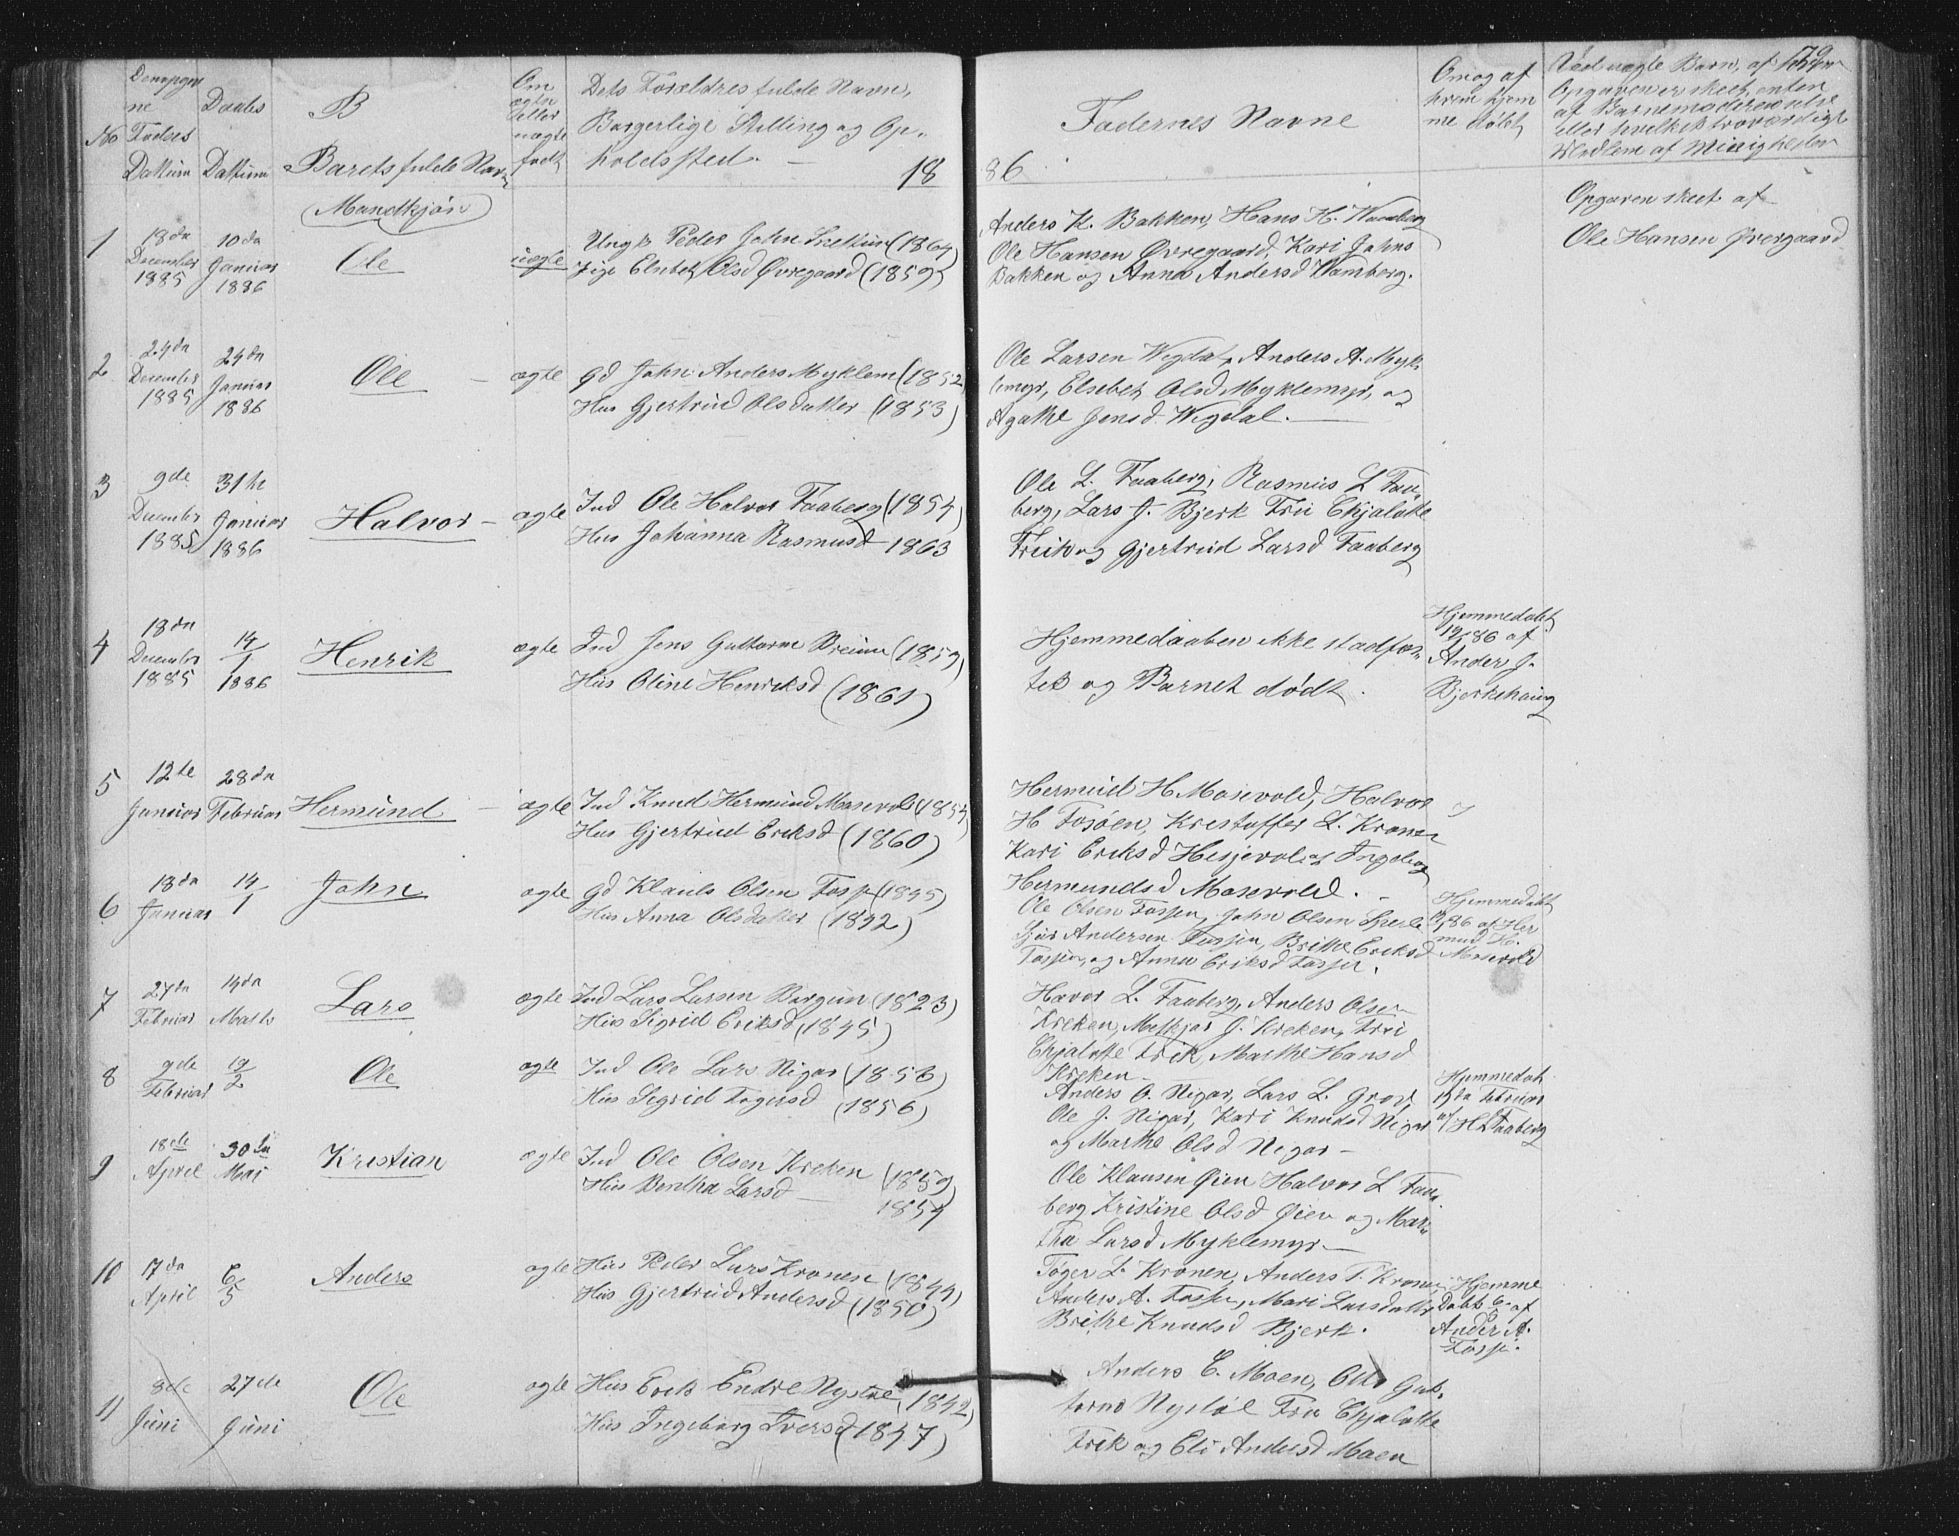 No
ne
Fødsels
Dattum
Daabs
Dattum
B
Barets fulde Navn
Om
ægte
eller
uægte
født
Dets Forældres fulde Navn,
Borgerlige Stilling og Op-
holdssted. —
18
86
Fadernes Navne
Om og af
hvem hjem
me døbt
179
Ved uægte Barn, af
Opgaven er skeet, enten
af Barnemoderen
eller hvilket troværdigt
Medlem af Menigheden
Mandkjøn
1
18da
December
1885
10da
Januar
1886
Ole
uægte
Ungk Peder John (1864)
Pige Elsebet Olsd Øvregaard (1859)
Anders K. Bakken, Hans H. Wamberg
Ole Hansen Øvregaard, Kari Johns
Bakken og Anna Andersd Wamberg.
Opgaven skeet af
Ole Hansen Øvergaard
2
24da
December
1885
24da
Januar
1886
Ole
ægte
Gd John Anders Myklem (1852
Hus Gjertrud Olsdatter (1853)
Ole Larsen Wigdal, Anders A. Myk
lemyr, Elsebet Olsd Myklemyr, og
Agathe Jensd. Wigdal.
3
9de
December
1885
31te
Januar
1886
Halvor
ægte
Ind Ole Halvor Faaberg (1854)
Hus Johanna Rasmusd 1863
Ole L. Faaberg, Rasmus L Faa
berg, Lars J. Bjerk Fru Chjalotte
Frik og Gjertrud Larsd Faaberg
4
18da
December
1885
14
1
1886
Henrik
ægte
Ind Jens Guttorm Breum (1859)
Hus Oline Henriksd (1861)
Hjemmedaaben ikke stadfæs
tet og Barnet dødt.
Hjemmedøbt
86 af
Ander J.
Bjerkehaug
5
12te
Januar
28da
Februar
Hermund
ægte
Ind Knud Hermund Mosevol (1854)
Hus Gjertrud Eriksd (1860)
Hermund H Mosevold, Halvor
H Fosøen, Kristoffer L. Kronen
Kari Eriksd Hesjevol og Ingeborg
Hermundsd Mosevold.
6
18da
Januar
14
1
John
ægte
Gd Klaus Olsen Fosse (1845)
Hus Anna Olsdatter (1842)
Ole Olsen Fossen, John Olsen Sperle
Andersen Fossen, Brithe Eriksd
Fossen og Anna Eriksd Fossen.
Hjemmedøbt
86 af Her
mund H.
Mosevold
7
27da
Februar
14da
Marts
Lars
ægte
Ind Lars Larsen Borgun (1823)
Hus Sigrid Eriksd (1845)
Havor L. Faaberg, Anders Olsen
Kreken, J. Kreken, Fru
Chjalotte Frik, Marthe Hansd
Kreken
8
9de
Februar
19
2
Ole
ægte
Ind Ole Lars Nigar (1856)
Hus Sigrid Togersd (1856)
Anders O. Nigar, Lars L. Grov,
Ole J. Nigar, Kari Knudsd Nigar
og Marthe Olsd Nigar —
Hjemmedøb
19da Februar
af H L Faaberg
9
18de
April
30da
Mai
Kristian
ægte
Ind Ole Olsen Kreken (1859)
Hus Bertha Larsd — 1854
Ole Klausen Øien Halvor L Faa
berg Kristine Olsd Øien og Mar
tha Larsd Myklemyr —
10
17da
April
6
5
Anders
ægte
Hus Peder Lars Kronen (1844)
Hus Gjertrud Andersd (1850)
Toger L. Kronen, Anders T. Kronen
Anders A. Fosse, Mari Larsdatter
Brithe Knudsd Bjerk.
Hjemme
Døbt af
Ander A.
Fosse.
11
8de
Juni
27de
Juni
Ole
ægte
Hus Erik Endre Nystøl (1842)
Hus Ingeborg Iversd (1847)
Anders E. Moen, Ole Gut,
torms Nystøl Fru Chjalotte
Frik og Eli Andersd Moen